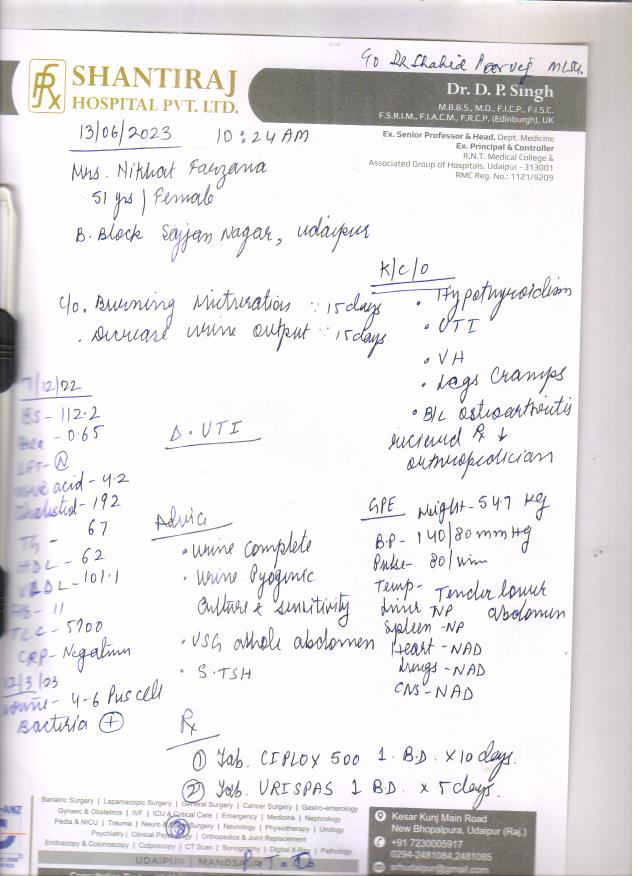 C/o Dr Shahid Parvej MLSU.
SHANTIRAJ
HOSPITAL PVT. LTD.
Dr. D. P. Singh
M.B.B.S., M.D., F.I.C.P., F.I.S.C.
F.S.R.I.M., F.I.A.C.M., F.R.C.P. (Edinburgh), UK
Ex. Senior Professor & Head, Dept. Medicine
Ex. Principal & Controller
R.N.T. Medical College &
Associated Group of Hospitals, Udaipur - 313001
RMC Reg. No.: 1121/9209
13/06/2023 10:24 AM
Mrs. Nikhat Farzana
51 yrs / Female
B. Block Sajjan Nagar, Udaipur
K/C/O
• Hypothyroidism
• UTI
• VH
• Legs Cramps
• B/L osteoarthritis
recieved Rx ↓
orthopedician
C/o. Burning micturation ∵ 15 days
• Decrease urine output ∵ 15 days
7/12/22
BS - 112.2
- 0.65
LFT - (N)
acid - 4.2
- 192
TG - 67
HDL - 62
VLDL - 101.1
- 11
TLC - 5700
CRP - Negative
12/3/23
Urine - 4-6 Pus cell
Bacteria (+)
Δ. UTI
Advice
• Urine complete
• Urine Pyogenic
Culture & sensitivity
• USG whole abdomen
• S. TSH
GPE Weight - 54.7 kg
B.P - 140/80 mmHg
Pulse - 80/min
Temp - Tender lower
abdomen
Liver NP
Spleen - NP
Heart - NAD
Lungs - NAD
CNS - NAD
Rx
① Tab. CIPLOX 500 1 B.D. x 10 days.
② Tab. URISPAS 1 B.D. x 5 days.
Bariatric Surgery | Laparoscopic Surgery | General Surgery | Cancer Surgery | Gastro-enterology
Gynaec & Obstetrics | IVF | ICU & Critical Care | Emergency | Medicine | Nephrology
Pedia & NICU | Trauma | Neuro & Surgery | Neurology | Physiotherapy | Urology
Psychiatry | Clinical | Orthopedics & Joint Replacement
Endoscopy & Colonoscopy | Colposcopy | CT Scan | Sonography | Digital X-Ray | Pathology
UDAIPUR | MANDSAUR
P.T.O
Kesar Kunj Main Road
New Bhopalpura, Udaipur (Raj.)
+91 7230005917
0294-2481084,2481085